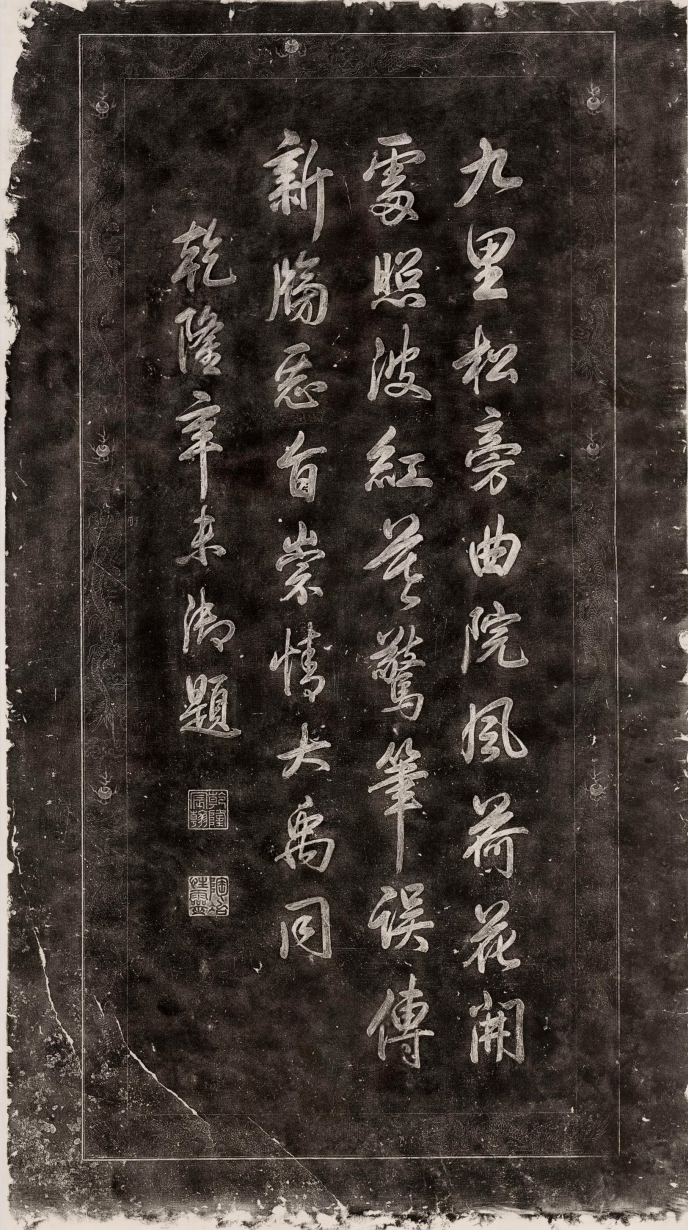 九里松旁曲院風荷花開
處照波紅莫驚筆誤傳
新牓惡旨崇情大禹同
乾隆辛未御題
乾隆宸翰
陶冶性靈